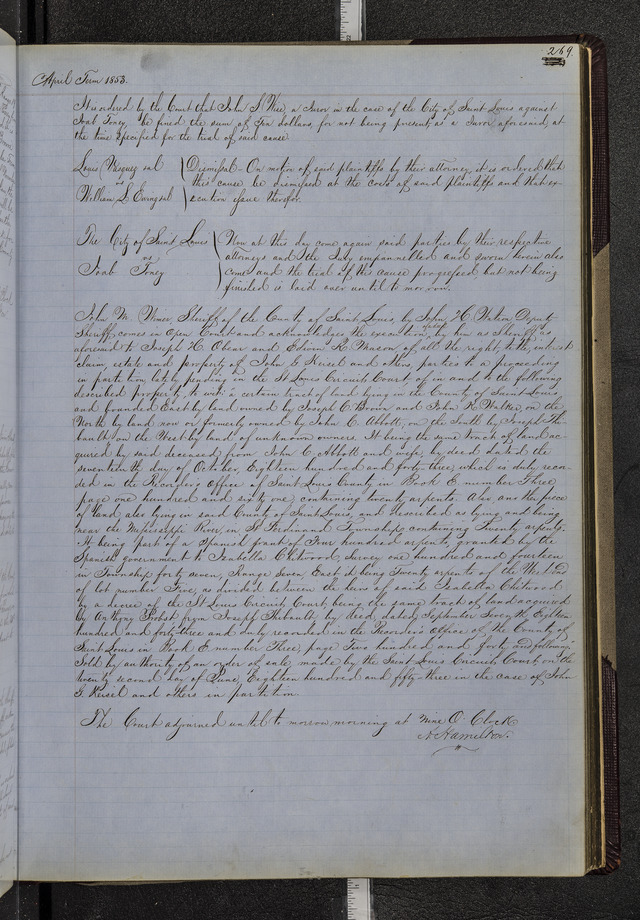 269.
April Term 1853.
It is ordered by the Court that John S. Wise, a Juror in the case of the City of Saint Louis against
Toney, be fined the sum of Ten dollars, for not being present as a Juror aforesaid, at
the time specified for the trial of said cause
Louis Vasquez et al
vs
William L. Ewing et al
Dismissal - On motion of said plaintiffs by their attorney, it is ordered that
this cause be dismissed at the costs of said plaintiffs and that ex-
ecution issue therefor.
The City of Saint Louis
vs
Toney
Now at this day come again said parties by their respective
attorneys and the Jury empannelled and sworn herein also
come and the trial of this cause progressed, but not being
finished is laid over until to morrow.
John M. Wimer, Sheriff of the County of Saint Louis, by John H. Deputy
Sheriff, comes in open Court and acknowledges the execution by him as Sheriff as
aforesaid to Joseph H. Obear and Edwin R. Mason of all the right, title, interest
claim, estate and property of John G. Keisel and others, parties to a proceeding
in partition lately pending in the St Louis Circuit Court of in and to the following
described property, to wit: a certain tract of land lying in the County of Saint Louis
and bounded East by land owned by Joseph C. Brown and John K. Walker, on the
North by land now or formerly owned by John C. Abbott, on the South by Joseph Thi-
bault, on the West by lands of unknown owners. It being the same tract of land ac-
quired by said deceased from John C. Abbott and wife by deed dated the
seventeenth day of October, Eighteen hundred and forty three, which is duly recor-
ded in the Recorders office of Saint Louis County in Book E number Three,
page one hundred and sixty one, containing twenty arpents. Also another piece
of land, also lying in said County of Saint Louis, and described as lying and being
near the Mississippi River, in St Ferdinand Township, containing Twenty arpents.
It being part of a Spanish grant of Four hundred arpents, granted by the
Spanish Government to Isabella Chitwood, Survey one hundred and fourteen
in Township forty seven, Range Seven East, it being Twenty arpents off the West end
of lot number Five, as divided between the heirs of said Isabella Chitwood
by a decree of the St Louis Circuit Court, being the same tract of land acquired
by Anthony Probst from Joseph Thibault, by deed, dated September Seventh, Eighteen
hundred and forty-three and duly recorded in the Recorders Office of the County of
Saint Louis in Book E number Three, page Two hundred and forty and following.
Sold by authority of an order of sale made by the Saint Louis Circuit Court, on the
twenty second day of June, Eighteen hundred and fifty-three in the case of John
G. Keisel and others in partition.
The Court adjourned until to morrow morning at Nine O. Clock
A. Hamilton.